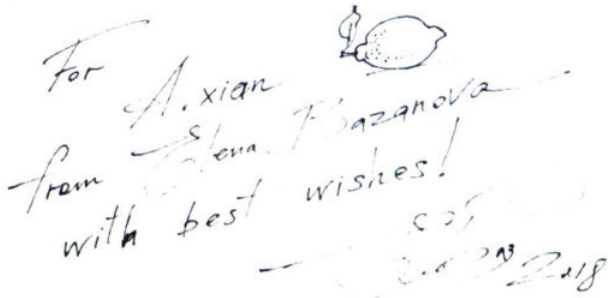 For
A. xian
from Elena Bazanova
with best wishes!
2018